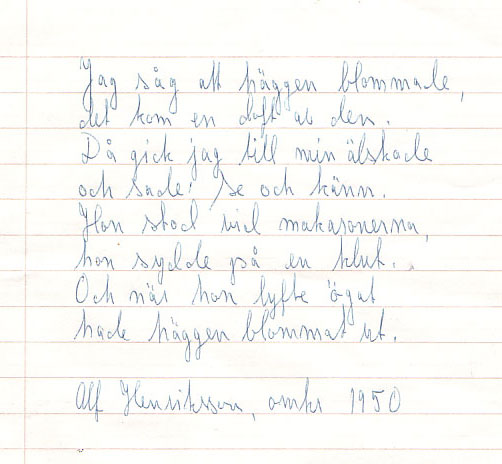 Jag såg att häggen blommade,
det kom en doft av den.
Då gick jag till min älskade
och sade: se och känn.
Hon stod vid makaronerna,
hon sydde på en klut.
Och när hon lyfte ögat
hade häggen blommat ut.
Alf Henriksson, omkr 1950